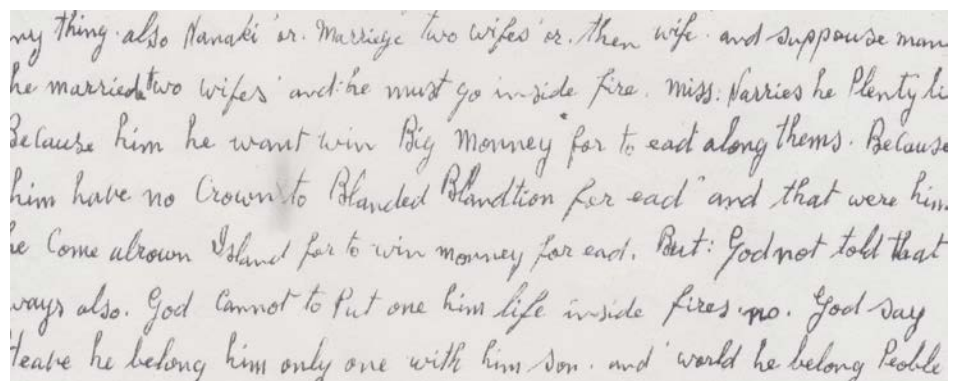 ny thing. also Nanaki or. Marriege two wifes or. then wife. and suppouse man
he married two wifes and he must go inside fire. miss: Narries he Plenty li
Because him he want win Big Monney for to ead along thems. Because
him have no Crown to Blanded Blandtion for ead and that were him
he Come abrown Island for to win monney for ead. But: God not told that
ways also. God Cannot to Put one him life inside fires. no. God say
he belong him only one with him son. and world he belong Peoble